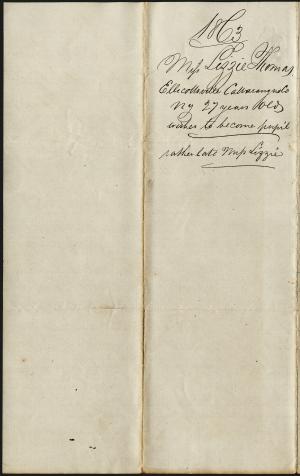 1863
Miss Lizzie Thomas
Ellicottville Cattaraugus Co
NY 27 years old
wishes to become pupil
rather late Miss Lizzie